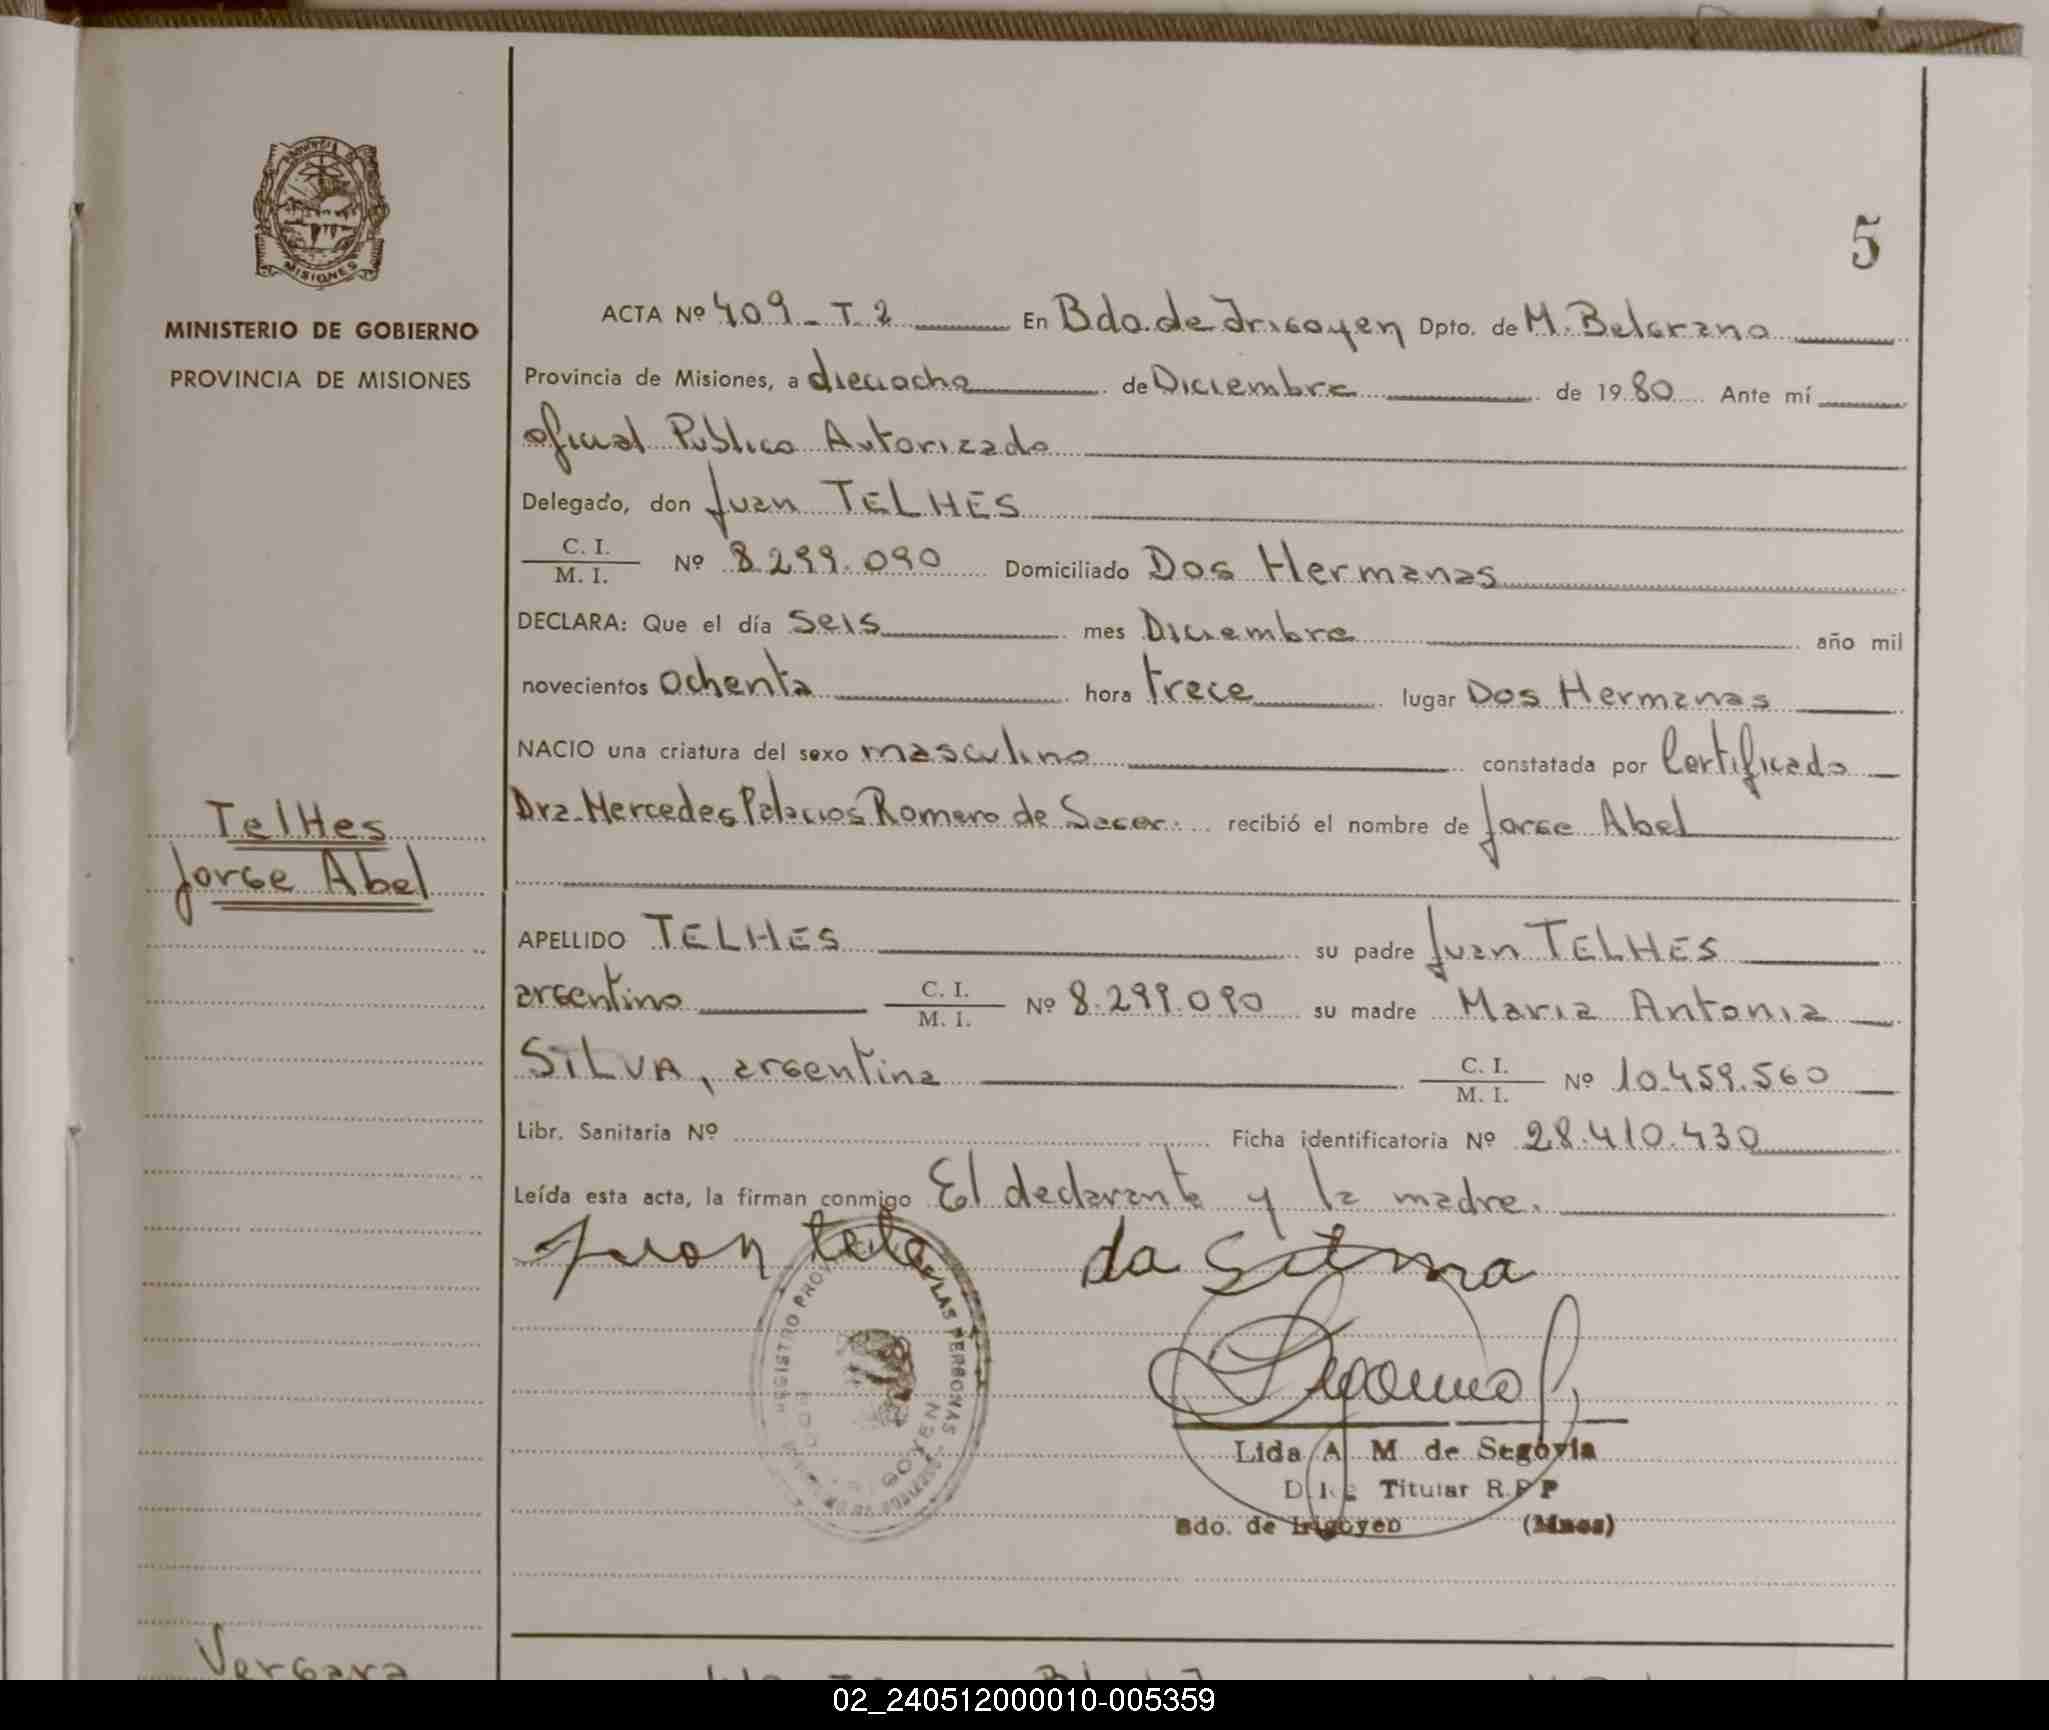 5
MINISTERIO DE GOBIERNO
PROVINCIA DE MISIONES
MISIONES
ACTA Nº 409 - T. 2 En Bdo. de Irigoyen Dpto. de M. Belgrano
Provincia de Misiones, a dieciocho de Diciembre de 1980 Ante mí
oficial Público Autorizado
Delegado, don Juan TELHES
C. I.
M. I. Nº 8.299.090 Domiciliado Dos Hermanas
DECLARA: Que el día seis mes Diciembre año mil
novecientos ochenta hora trece lugar Dos Hermanas
NACIO una criatura del sexo masculino constatada por Certificado
Dra. Mercedes Palacios Romero de Sacer. recibió el nombre de Jorge Abel
TelHes
Jorge Abel
APELLIDO TELHES su padre Juan TELHES
argentino C. I.
M. I. Nº 8.299.090 su madre Maria Antonia
SILVA, argentina C. I.
M. I. Nº 10.459.560
Libr. Sanitaria Nº Ficha identificatoria Nº 28.410.430
Leída esta acta, la firman conmigo El declarante y la madre.
da Silma
REGISTRO PROV LAS PERSONAS
Lida A. M. de Segovia
Titular R.P.P
Bdo. de Irigoyen (Mnes)
Vergara
02_240512000010-005359